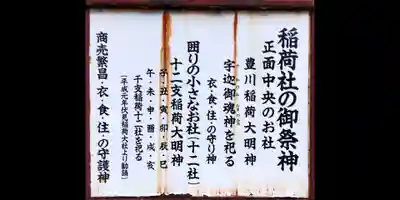 稲荷社の御祭神
正面中央のお社
豊川稲荷大明神
宇迦御魂神を祀る
衣・食・住・の守り神
囲りの小さなお社(十二社)
十二支稲荷大明神
子・丑・寅・卯・辰・巳
午・未・申・酉・戌・亥
干支稲荷十二社を祀る
(平成元年伏見稲荷大社より勧請)
商売繁昌・衣・食・住・の守護神